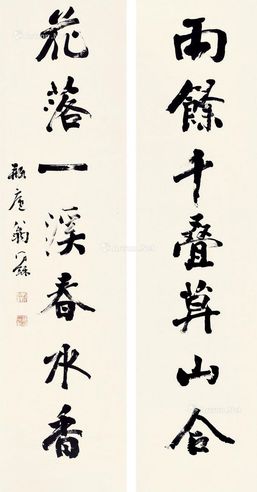 雨餘千疊莫山合
花落一溪春水香
瓶廬翁同龢